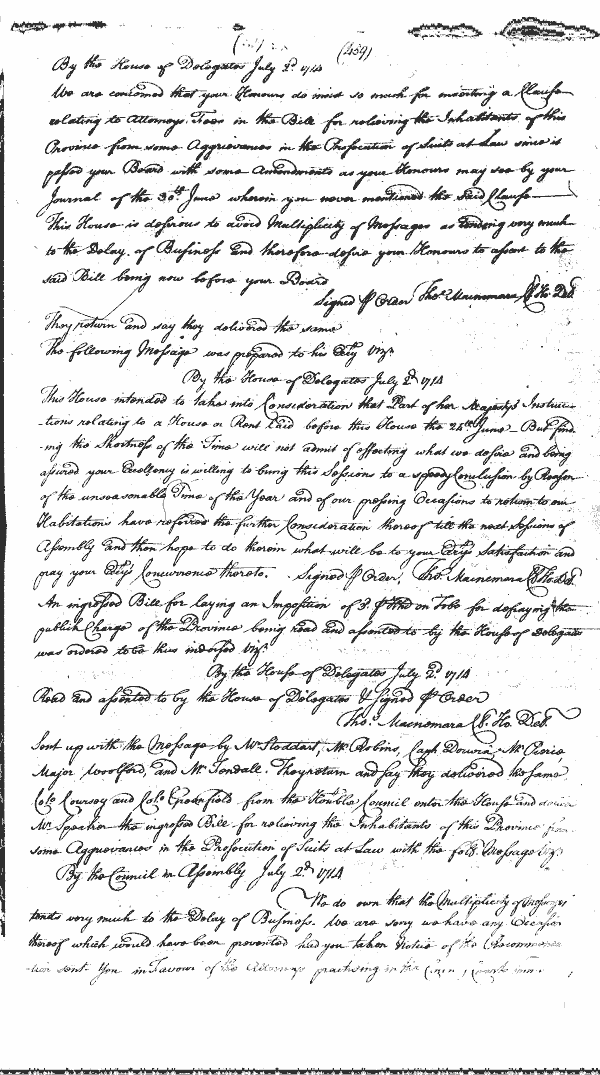 (459)
By the House of Delegates July 2d. 1714
We are concerned that your Honours do insist so much for inserting a Clause
relating to Attorneys Fees in the Bill for relieving the Inhabitants of this
Province from some Aggrievances in the Prosecution of Suits at Law since it
passed your Board with some Amendments as your Honours may see by your
Journal of the 30th June wherein you never mentioned the said Clause
This House is desirous to avoid Multiplicity of Messages as tending very much
to the Delay of Business and therefore desire your Honours to assent to the
said Bill being now before your Board
Signed p Order Thos. Macnemara Cl. Ho. Del.
They return and say they delivered the same
The following Message was prepared to his Excy Vizt.
By the House of Delegates July 2d. 1714
This House intended to take into Consideration that Part of her Majestys Instruc-
-tions relating to a House or Rent laid before this House the 24th June But find-
ing the Shortness of the Time will not admit of effecting what we desire and being
assured your Excellency is willing to bring this Sessions to a speedy Conclusion by Reason
of the unseasonable Time of the Year and of our pressing Occasions to return to our
Habitations have referred the further Consideration thereof till the next Sessions of
Assembly and then hope to do therein what will be to your Excys Satisfaction and
pray your Excys Concurrence thereto. Signed p Order, Thos. Macnemara Cl. Ho. Del.
An ingrossed Bill for laying an Imposition of 3d. p Hhd on Tobo. for defraying the
publick Charge of the Province being read and assented to by the House of Delegates
was ordered to be thus indorsed Vizt.
By the House of Delegates July 2d. 1714
Read and assented to by the House of Delegates & Signed p Order
Thos. Macnemara Cl. Ho. Del.
Sent up with the Message by Mr. Stoddart, Mr. Robins, Capt Dowin Mr. Peerie
Major Woolford, and Mr. Tondall. They return and say they delivered the same
Colo. Coursey and Colo. Greenfield from the Honble Council enter the House and
Mr. Speaker the ingrossed Bill for relieving the Inhabitants of this Province from
some Aggrievances in the Prosecution of Suits at Law with the follg. Message Vizt.
By the Council in Assembly July 2d. 1714
We do own that the Multiplicity of Messages
tends very much to the Delay of Business. We are sorry we have any Occasion
thereof which would have been prevented had you taken Notice of the Recommenda-
-tion sent You in Favour of the Attorneys practising in the County Courts